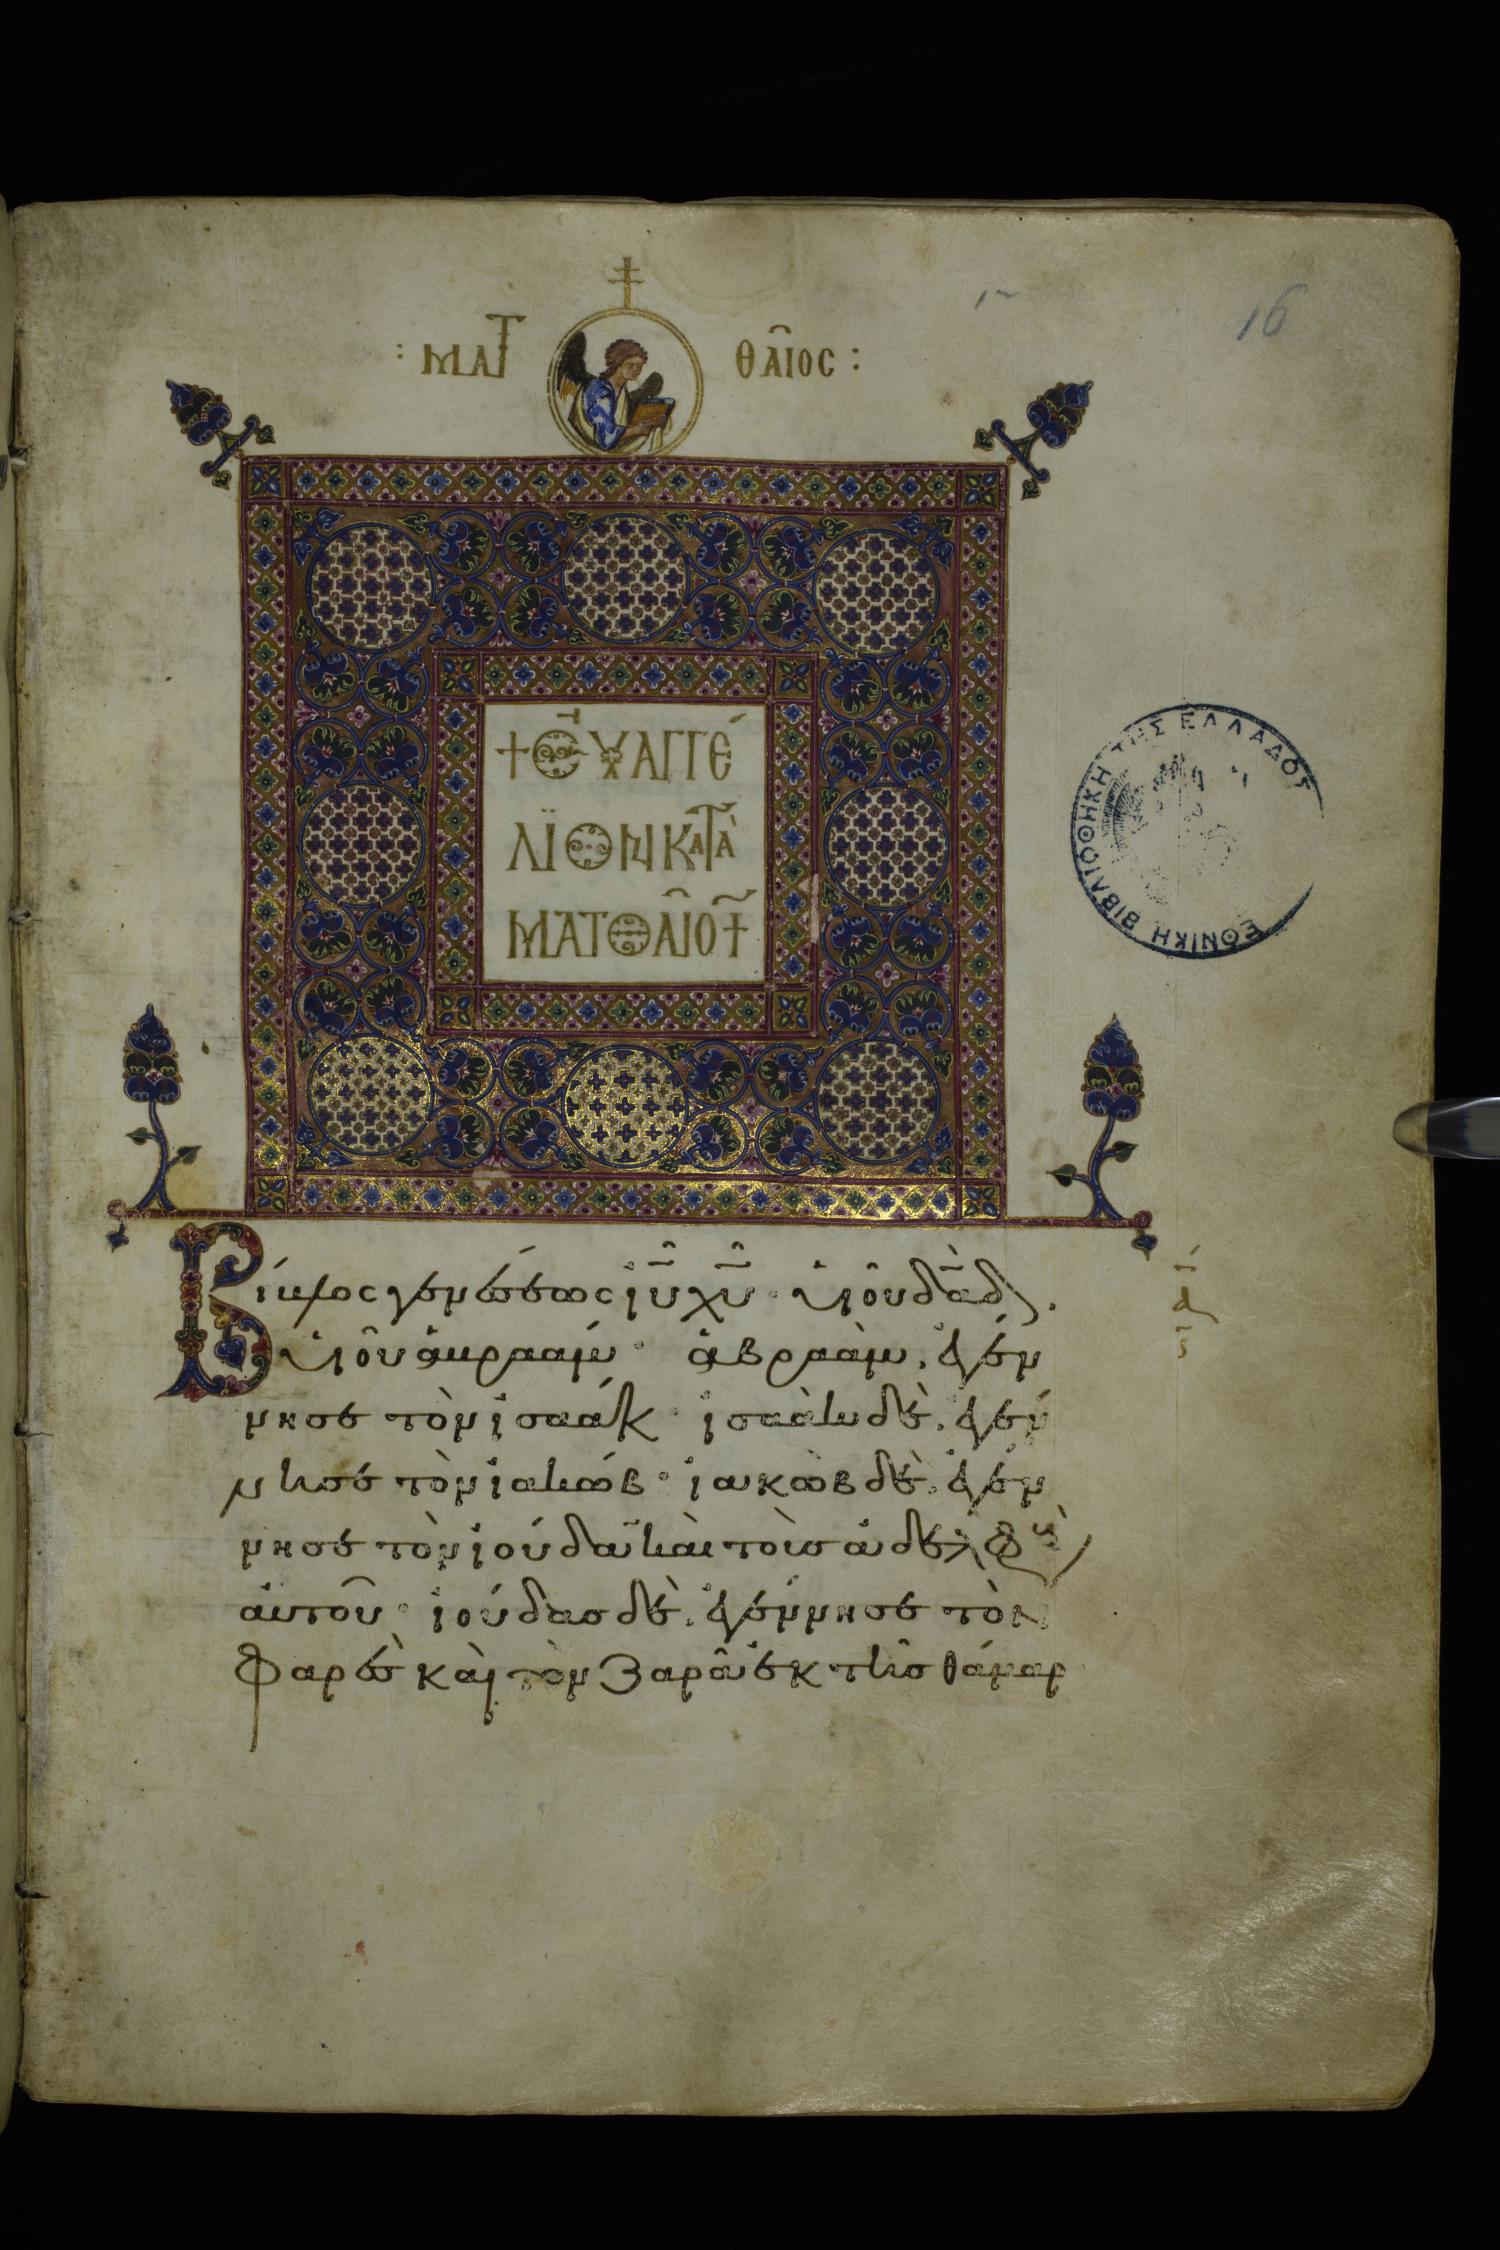 16
: ΜΑΤ ΘΑῖΟC :
+ ΕΥΑΓΓΈ
ΛΪΟΝ ΚΑΤᾺ
ΜΑΤΘΑῖΟΝ
ΕΘΝΙΚΗ ΒΙΒΛΙΟΘΗΚΗ ΤΗΣ ΕΛΛΑΔΟΣ
Βίβλος γενέσεως ἰῦ χῦ · υἱοῦ δαδ .
υἱοῦ ἀβραάμ · ἀβραὰμ , ἐγέν
νησε τὸν ἰσαάκ · ἰσαὰκ δὲ , ἐγέν
νησε τὸν ἰακώβ · ἰακὼβ δὲ , ἐγέν
νησε τὸν ἰούδαν καὶ τοὺσ ἀδελφοὺς
αὐτοῦ · ἰούδασ δὲ , ἐγέννησε τὸν
φαρὲσ καὶ τὸν ζαρὰ ἐκ τῆσ θάμαρ